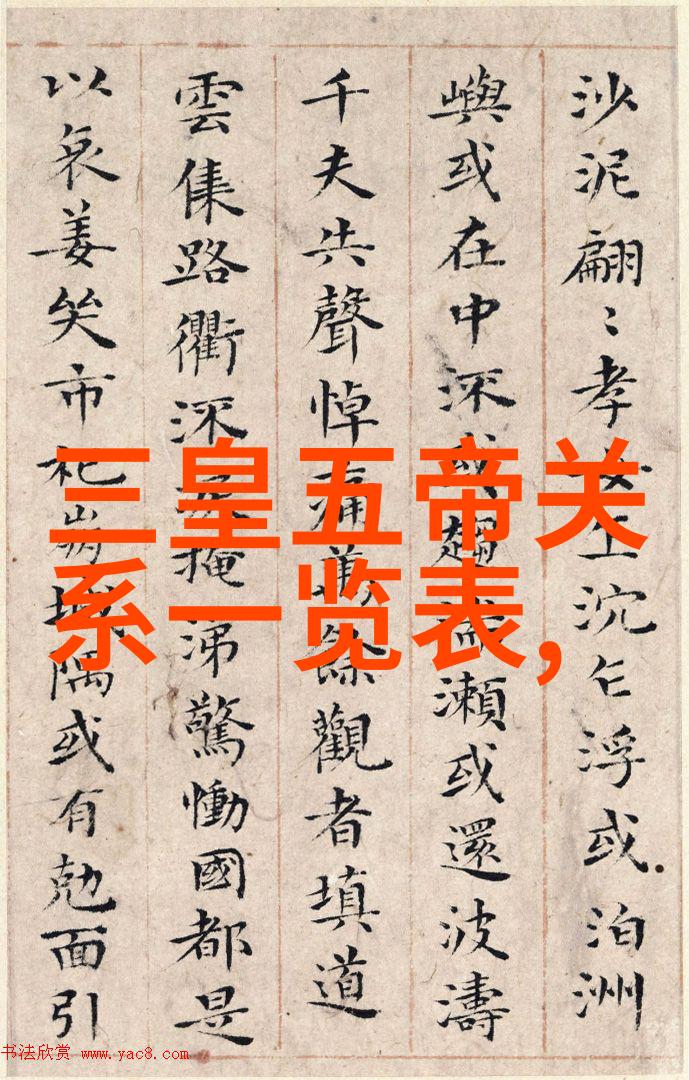 三皇五帝关
系一览表,
沙泥翩〻孝女乍沉乍浮或泊洲
嶼或在中流或趨湍瀨或還波濤
千夫共聲悼痛萬餘觀者填道
雲集路衢流淚掩涕驚慟國都是
以哀姜哭市杞崩城隅或有尅面引
书法欣赏 www.yac8.com